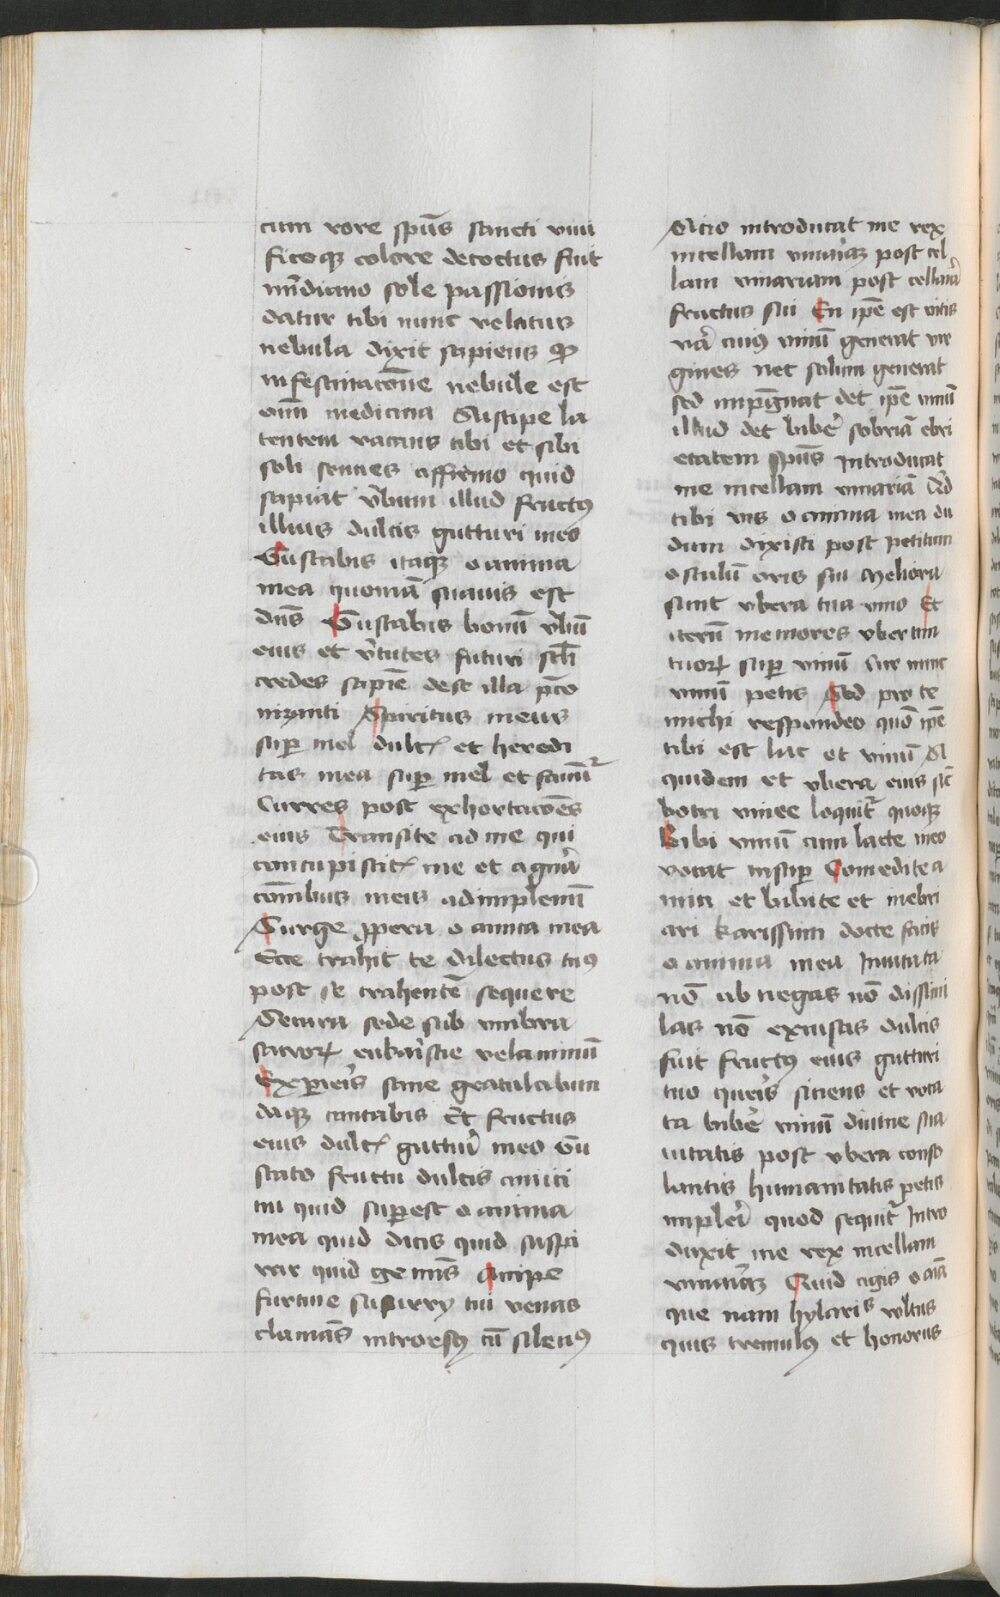 cum rore spūs sancti viui
ficoqꝫ colore decoctus fuit
mīdiano sole passionis
datur tibi nunc velatus
nebula dixit sapiens ꝙ
in festinacōne nebule est
oīm medicina Suscipe la
tentem vacuus tibi et sibi
soli senties affirmo quid
sapiat v̄bum illud fructꝯ
illius dulcis gutturi meo
Gustabis itaqꝫ o anima
mea quoniā suauis est
dn̄s Gustabis bonū v̄bū
eius et v̄tutes futuri scl̄i
credes sapiē desc illa
Spiritus meus
suꝑ mel dulcꝭ et heredi
tas mea suꝑ mel et fauū
Curres post exhortacōes
eius Transite ad me qui
concupiscitꝭ me et a gn̄a
cōnibus meis adimplemī
Surge ꝓpera o amica mea
Ecce trahit te dilectus tuꝯ
post se trahentē sequere
Secura sede sub vmbra
sacroꝝ eukaristie velaminū
Experieris sane
daqꝫ cantabis Et fructus
eius dulcꝭ gutturi meo Gu
stato fructu dulcis amici
tui quid suꝑest o anima
mea quid dicis quid suspi
rar quid gemis Accipe
furtiue susurrij tui venas
clamās introrsꝯ cū silenꝯ
Alcio introducat me rex
in cellam vinariaqꝫ post cel
lam vinariam post cellariā
fructus sui En ip̄e est vitis
vā cuiꝯ vinū generat vir
gines nec solum generat
sed inpīgnat det ip̄e vinū
illud det bibe᷒ sobriā ebri
etatem spūs Introducat
me in cellam vinariā Qd
tibi vis o anima mea du
dum dixisti post petitum
osculū oris sui Meliora
sunt vbera tua vino Et
iterū memores vberum
tuoꝝ suꝑ vinū Cur nunc
vinū petis Sed pro te
michi respondeo quō ip̄e
tibi est lac et vinū Si
quidem et vbera eius sic̄
botri vinee loquit᷒ quoqꝫ
Bibi vinū cum lacte meo
vocat insuꝑ Comedite a
mici et bibite et inebri
ari karissimi docte satis
o anima mea Inuitata
nō abnegas nō dissimi
las nō excusas dulcis
fuit fructꝯ eius gutturi
tuo queris siciens et voca
ta bibe᷒ vinū diuine sua
uitatis post vbera conso
lantis humanitatis petis
impleri quod sequit᷒ Intro
duxit me rex in cellam
vinariaqꝫ Quid agis o aīa
que nam hylaris vultus
quis tremulꝯ et honorus